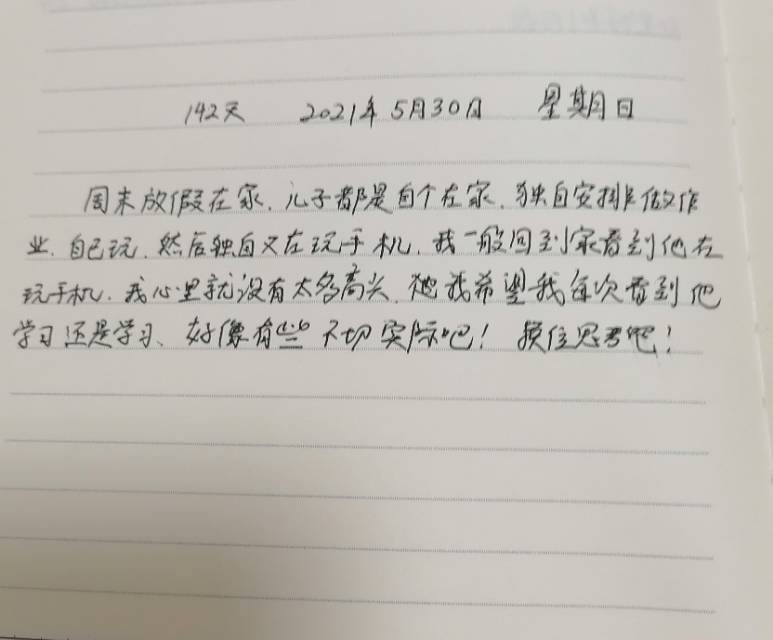 142天 2021年5月30日 星期日
周末放假在家,儿子都是自个在家,独自安排做作
业,自己玩,然后独自又在玩手机,我一般回到家看到他在
玩手机,我心里就没有太多高兴,我希望我每次看到他
学习还是学习、好像有些不切实际吧!换位思考吧!